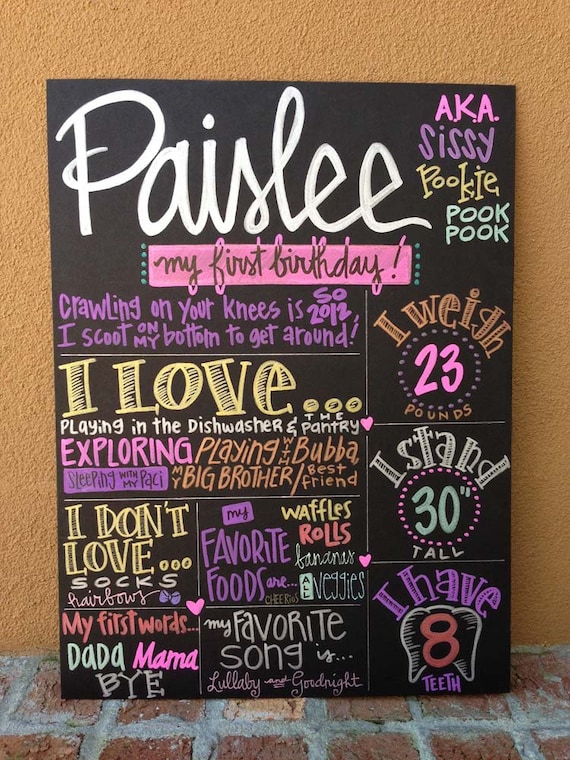 Paislee
A.K.A.
Sissy
Pookie
POOK
POOK
my first birthday!
Crawling on your knees is SO 2012,
I scoot on my bottom to get around!
I LOVE...
Playing in the Dishwasher & THE PANTRY
EXPLORING
Sleeping WITH MY Paci
Playing WITH Bubba
MY BIG BROTHER/Best friend
I DON'T
LOVE...
SOCKS
hairbows
my
FAVORITE
FOODS are...
WAFFLES
ROLLS
bananas
CHEERIOS
ALL Veggies
My first words...
DADA Mama
BYE
my FAVORITE
SONG is...
Lullaby and Goodnight
I weigh
23
POUNDS
I stand
30"
TALL
I have
8
TEETH